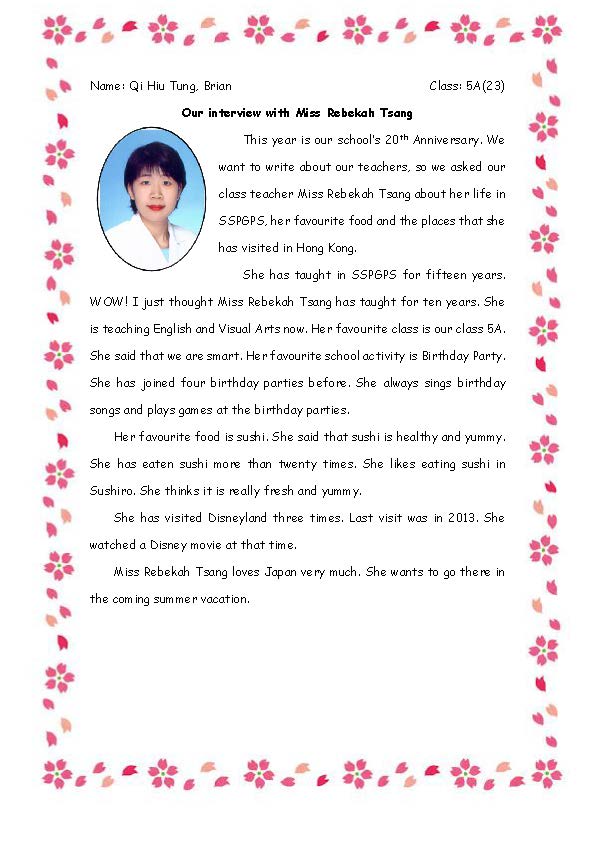 Name: Qi Hiu Tung, Brian Class: 5A(23)
Our interview with Miss Rebekah Tsang
This year is our school's 20th Anniversary. We
want to write about our teachers, so we asked our
class teacher Miss Rebekah Tsang about her life in
SSPGPS, her favourite food and the places that she
has visited in Hong Kong.
She has taught in SSPGPS for fifteen years.
WOW! I just thought Miss Rebekah Tsang has taught for ten years. She
is teaching English and Visual Arts now. Her favourite class is our class 5A.
She said that we are smart. Her favourite school activity is Birthday Party.
She has joined four birthday parties before. She always sings birthday
songs and plays games at the birthday parties.
Her favourite food is sushi. She said that sushi is healthy and yummy.
She has eaten sushi more than twenty times. She likes eating sushi in
Sushiro. She thinks it is really fresh and yummy.
She has visited Disneyland three times. Last visit was in 2013. She
watched a Disney movie at that time.
Miss Rebekah Tsang loves Japan very much. She wants to go there in
the coming summer vacation.